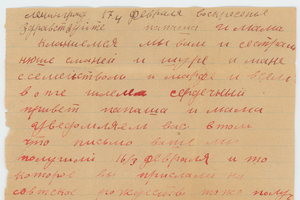 Ленинград 17 февраля воскресенье
Здравствуйте папаша и мама
кланиемся мы вам и сестра
нюше и шуре и мане
с семейством и и всем
шлем сердечный
привет папаша и мама
уведомляем вас в том
что письмо ваше мы
получили 16/II февраля и то
которое вы прислали на
рождество тоже полу